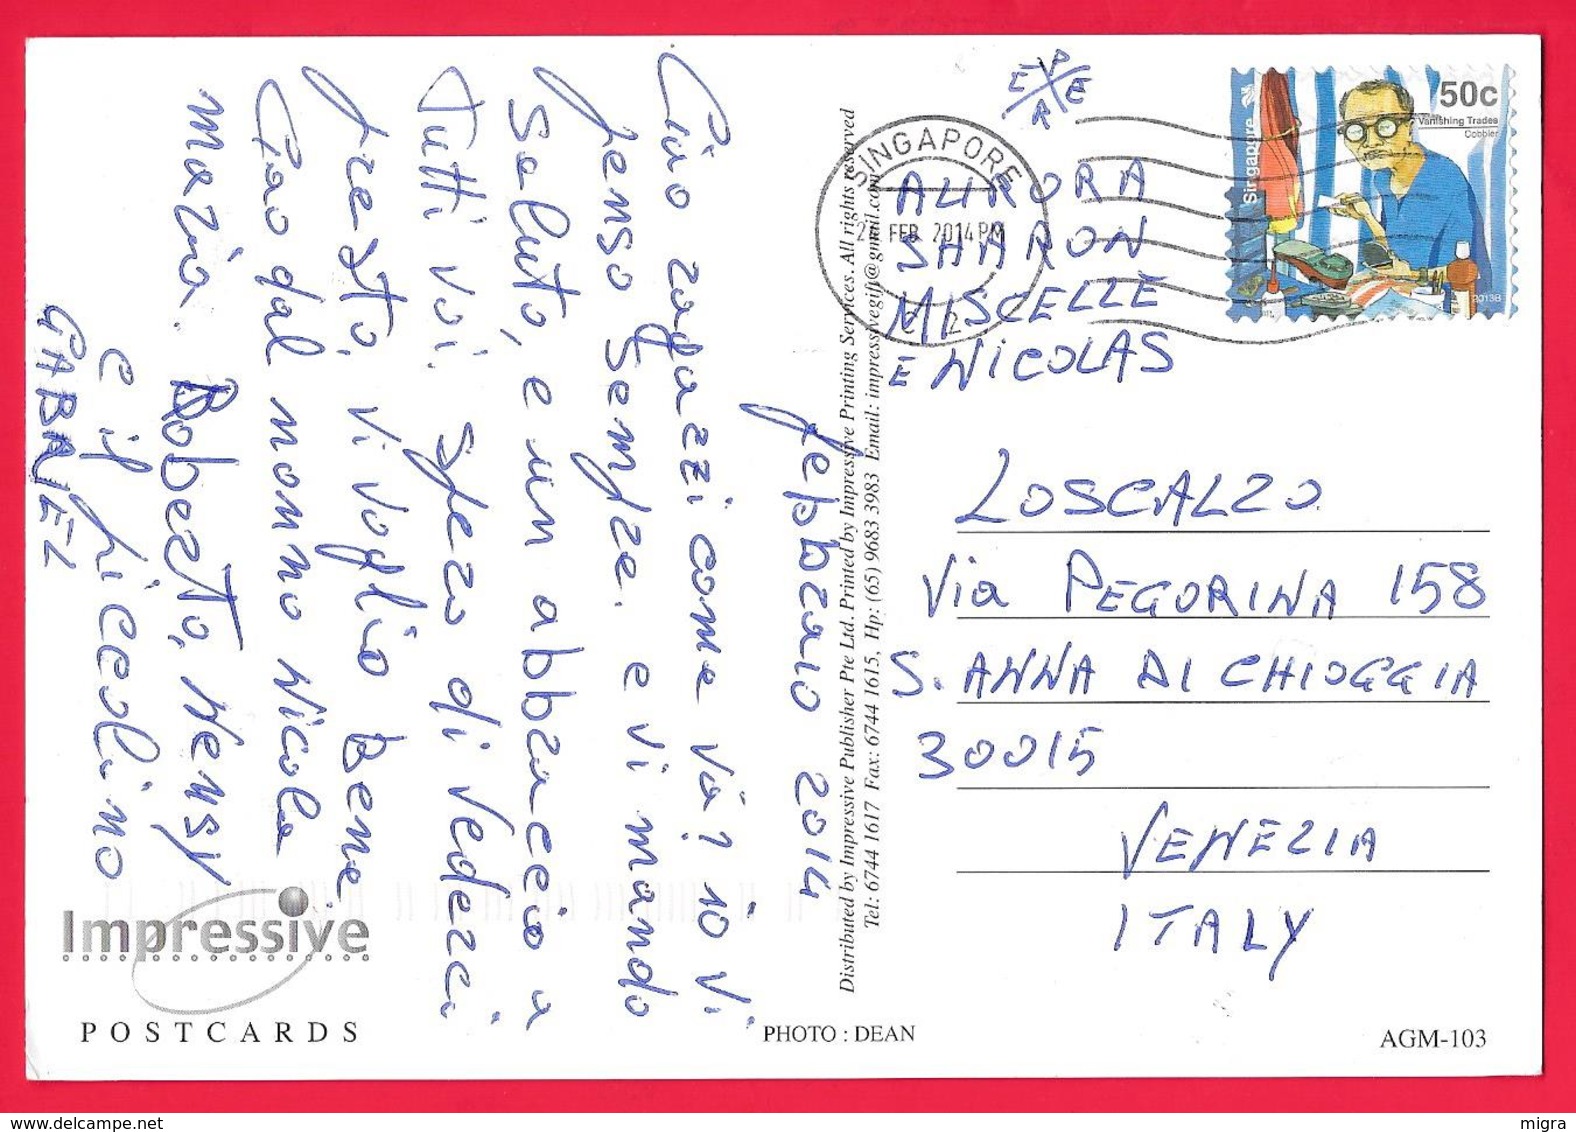 febbraio 2014
Ciao ragazzi come va? io vi
penso sempre. e vi mando
saluto, e un abbraccio a
Tutti voi. Spero di vederci
presto, vi voglio Bene
Ciao dal nonno Nicola
Roberto,
e il piccolino
GABRIEL
Impressive
POSTCARDS
Distributed by Impressive Publisher Pte Ltd. Printed by Impressive Printing Services. All rights reserved
Tel: 6744 1617 Fax: 6744 1615, Hp: (65) 9683 3983 Email: impressivegift@gmail.com
PHOTO : DEAN
AGM-103
SINGAPORE
FEB 2014 PM
Singapore
50c
Vanishing Trades
Cobbler
2013B
AURORA
SHARON
MISCELLE
E NICOLAS
LOSCALZO
Via PEGORINA 158
S. ANNA DI CHIOGGIA
30015
VENEZIA
ITALY
migra